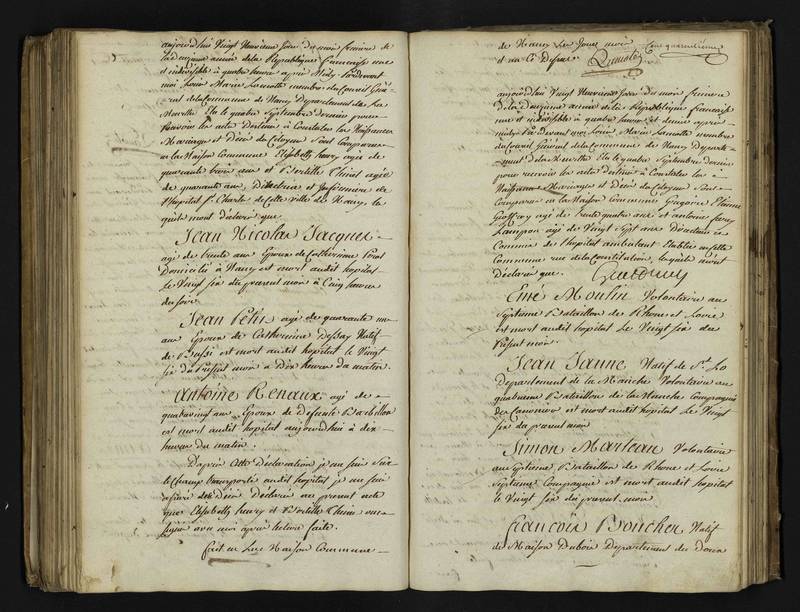 aujourd'hui Vingt Neuvieme Jour du mois frimaire de
La deuxieme année de la Republique francaise une
et indivisible a quatre heures apres Midy Pardevant
moi Louis Marie Lamotte membre du Conseil Géné-
-ral de la Commune de Nancy Departement de La
Meurthe Elu le quatre Septembre dernier pour
recevoir les actes Destinés à Constater les Naissances
Mariages et Décès des Citoyens Sont Comparus
en la Maison Commune Elisabeth henry agée de
quarante trois ans et Bortille Thirel agée
de quarante ans, Directrice et Infirmiere de
l'hopital St Charle de Cette ville de Nancy le-
quels m'ont déclaré que.
Jean Nicolas Jacques
agé de trente ans Epoux de Catherinne
Domicilié à Nancy est mort audit hopital
Le Vingt six du present mois à Cinq heures
du soir.
Jean Petin agé de quarante un
ans Epoux de Catherinne Dessay Natif
de Bussi est mort audit hopital le Vingt
six du Present mois a Dix heures du matin.
Antoine Renaux agé de
quatrevingt ans Epoux de Defunte Barbillon
est mort audit hopital aujourd'hui a dix
heures du matin.
D'après Cette Déclaration je me suis Sur-
le Champ transporté audit hopital je me suis
assuré des Décès Déclarés au present acte
que Elisabeth henry et Bortille Thirel ont
signé avec moi après lecture faite.
fait en La Maison Commune
de Nancy Les Jour, mois
et an Ci Dessus. Lamotte
aujourd'hui Vingt Neuvieme Jour du mois frimaire
de la Deuxieme année de la Republique francaise
une et indivisible a quatre heures et demie après-
midy Pardevant moi Louis Marie Lamotte membre
du Conseil Général de la Commune de Nancy Departe-
-ment de la Meurthe Elu le quatre Septembre dernier
pour recevoir les actes destinés à Constater les
Naissances Mariages et Décès des Citoyens Sont
Comparus en la Maison Commune Grégoire Etienne
Geoffroy agé de trente quatre ans et antoine
Lampon agé de Vingt Sept ans Directeur et
Commis de l'hopital ambulant Etablie en cette
Commune rue de la Constitution, lesquels m'ont
Déclaré que.
Emé Moulin Volontaire au
Septieme Bataillon de Rhone et Loire
est mort audit hopital Le Vingt six du
Present mois.
Jean Jaune Natif de St Lo
Departement de la Manche Volontaire au
quatrieme Bataillon de la Manche Compagnie
de est mort audit hopital Le Vingt
six du present mois
Simon Marteau Volontaire
au septieme Bataillon de Rhone et Loire
septieme Compagnie est mort audit hopital
le Vingt six du present mois
francois Boucher Natif
de Maison Dubois Departement du Doux